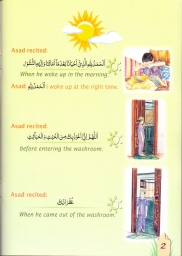 Asad recited:
الْحَمْدُ لِلَّهِ الَّذِي أَحْيَانَا بَعْدَ مَا أَمَاتَنَا وَإِلَيْهِ النُّشُورُ
When he woke up in the morning.
Asad: الْحَمْدُ لِلَّهِ I woke up at the right time.
Asad recited:
اللَّهُمَّ إِنِّي أَعُوذُ بِكَ مِنَ الْخُبُثِ وَالْخَبَائِثِ
before entering the washroom.
Asad recited:
غُفْرَانَكَ
When he came out of the washroom.
2